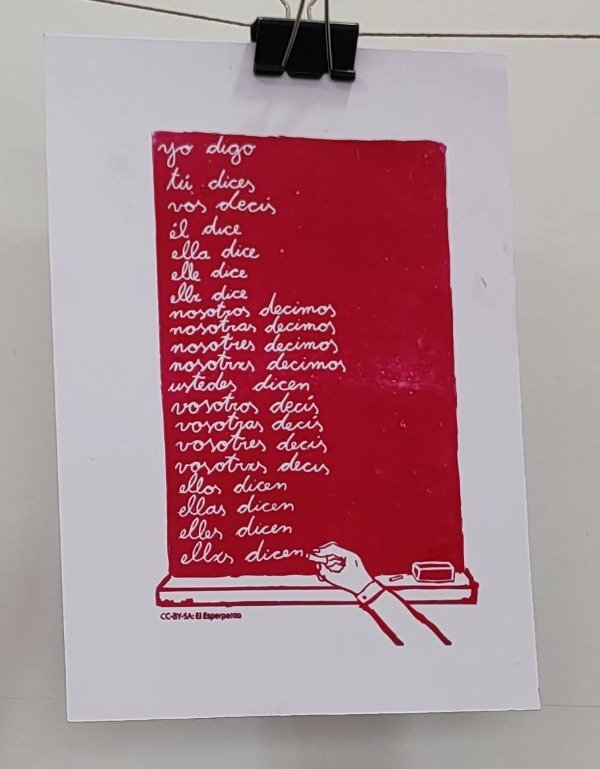 yo digo
tú dices
vos decís
él dice
ella dice
elle dice
ellx dice
nosotros decimos
nosotras decimos
nosotres decimos
nosotrxs decimos
ustedes dicen
vosotros decís
vosotras decís
vosotres decís
vosotrxs decís
ellos dicen
ellas dicen
elles dicen
ellxs dicen
CC-BY-SA: El Esperpento